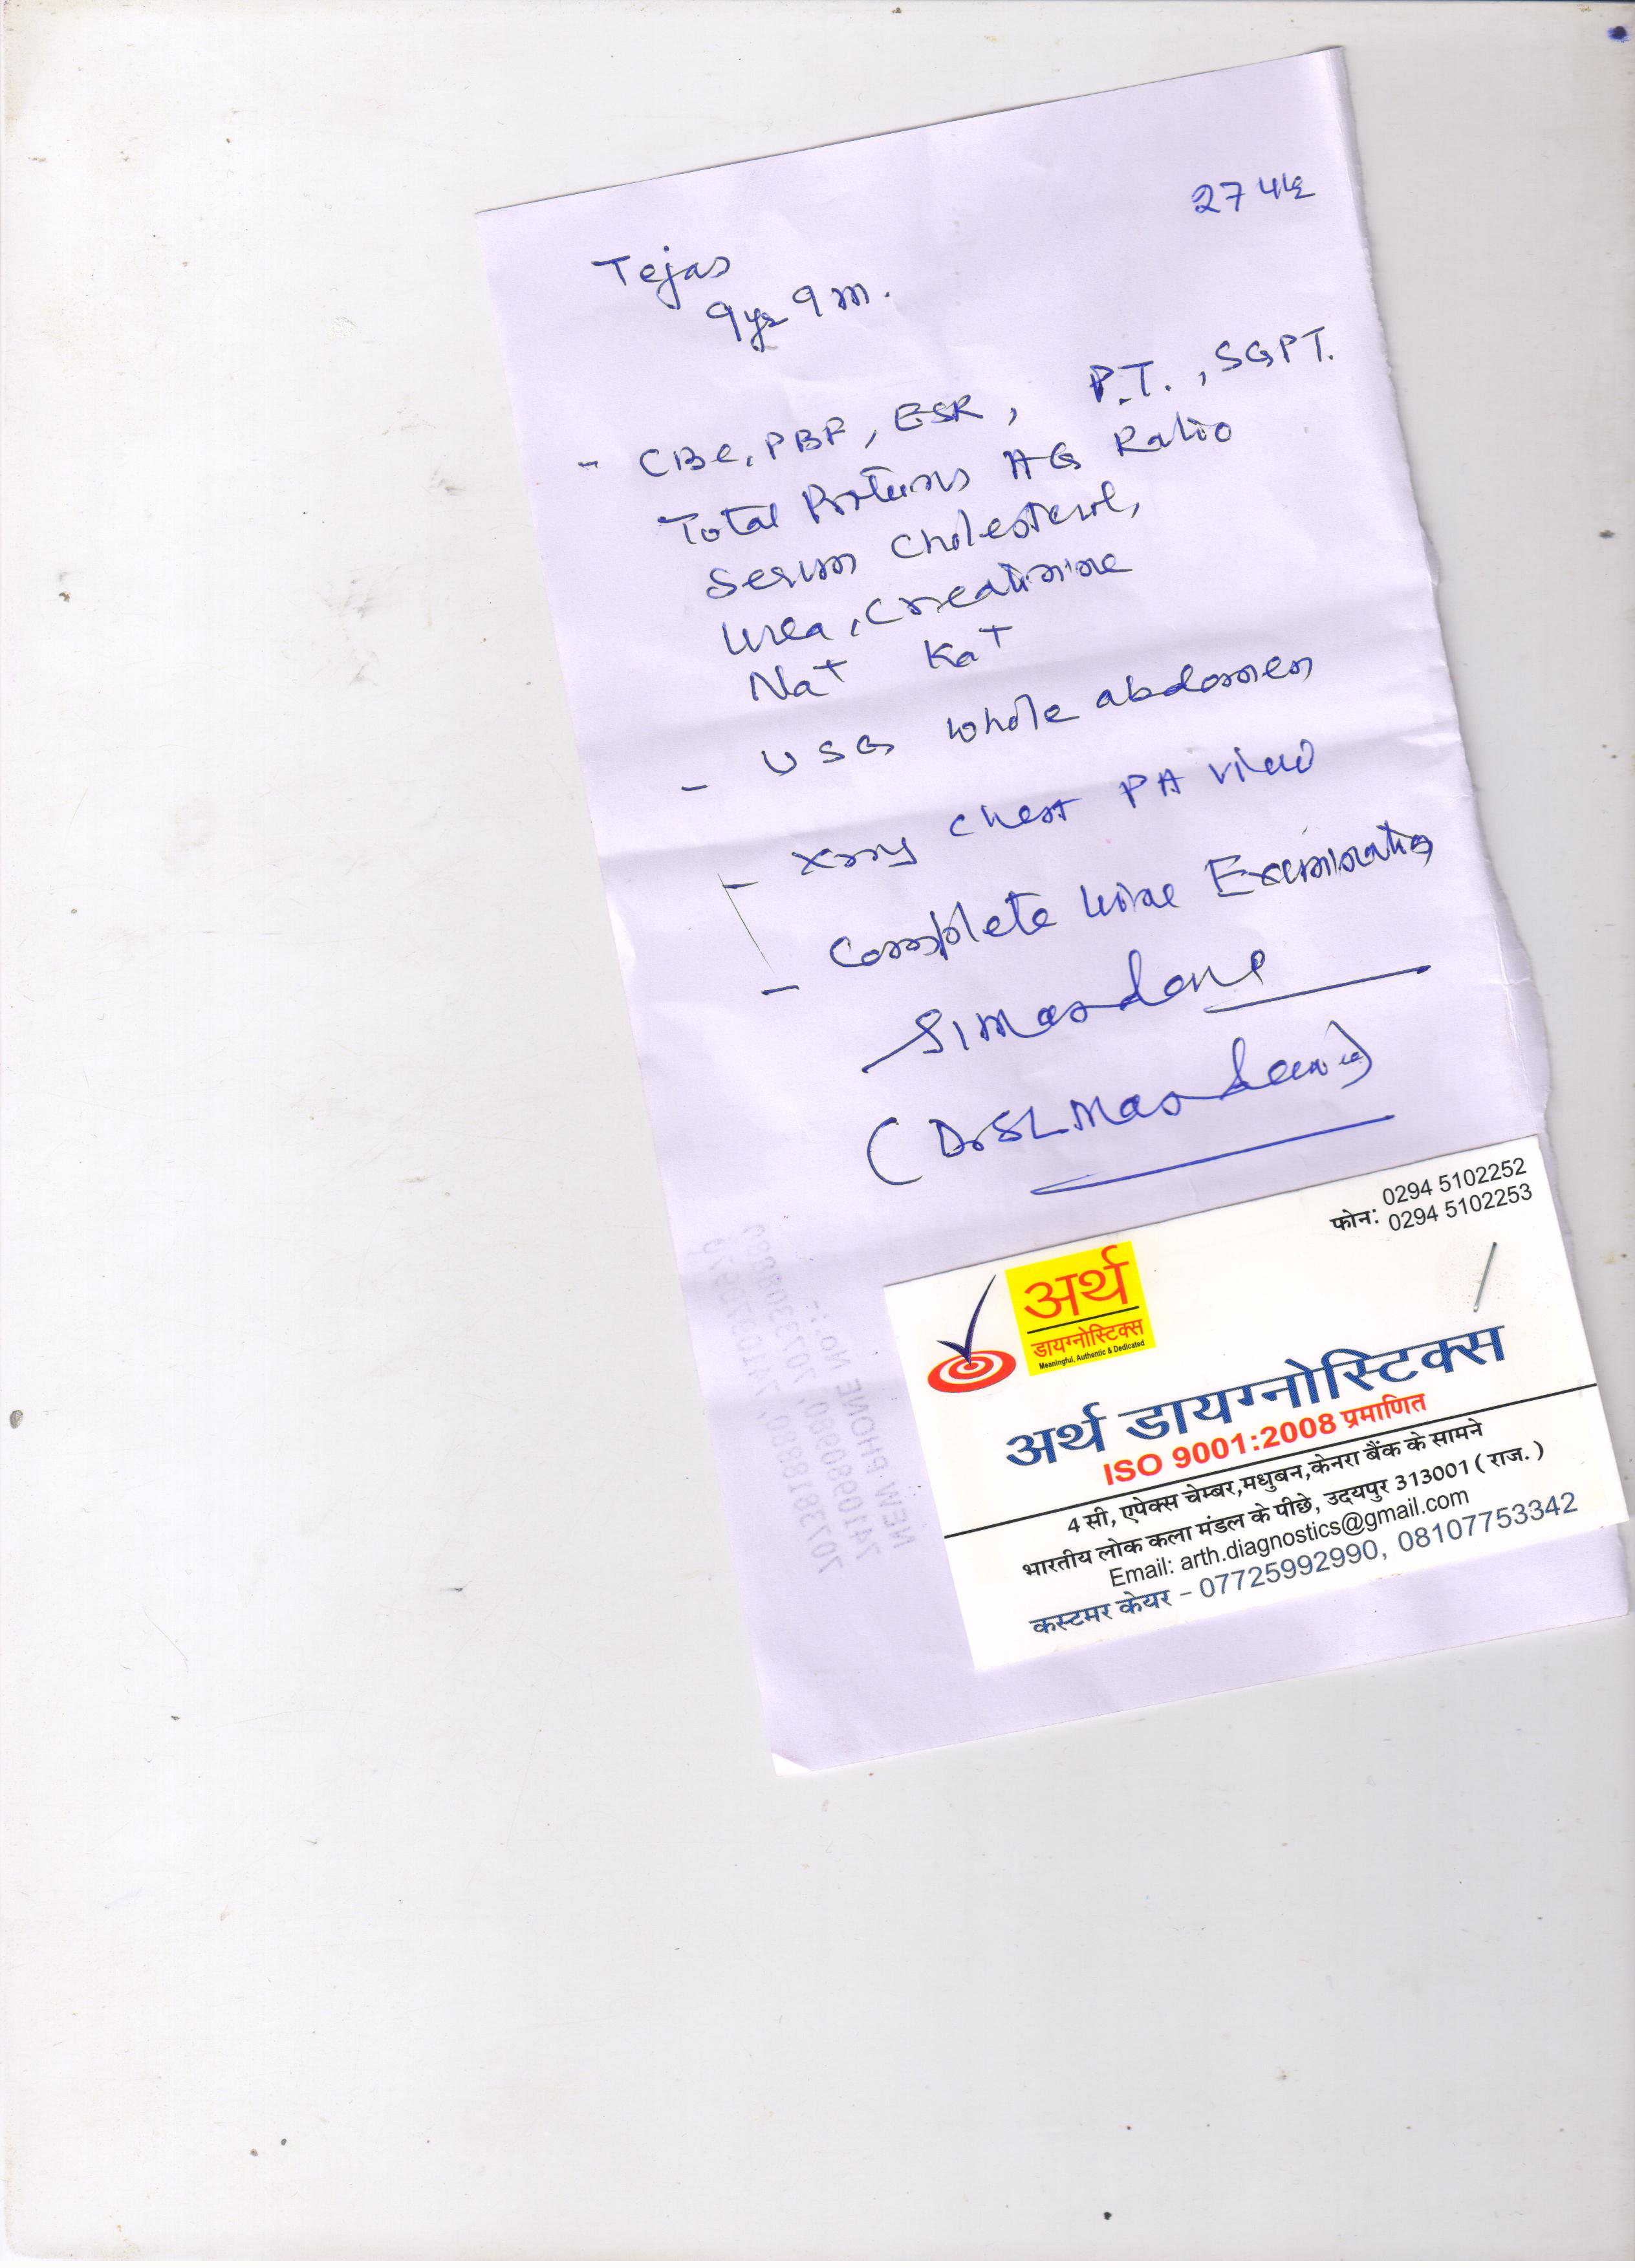 27 4 16
Tejas
9 yrs 9 m.
- CBC, PBF, ESR, P.T., SGPT.
Total Proteins AG Ratio
Serum Cholesterol,
Urea, Creatinine
Na+ Ka+
- USG whole abdomen
- Xray chest PA view
- Complete Urine Examination
(Dr SL
फोन: 0294 5102252
0294 5102253
अर्थ
डायग्नोस्टिक्स
Meaningful, Authentic & Dedicated
अर्थ डायग्नोस्टिक्स
ISO 9001:2008 प्रमाणित
4 सी, एपेक्स चेम्बर,मधुबन,केनरा बैंक के सामने
भारतीय लोक कला मंडल के पीछे, उदयपुर 313001 ( राज. )
Email: arth.diagnostics@gmail.com
कस्टमर केयर – 07725992990, 08107753342
NEW PHONE No.:-